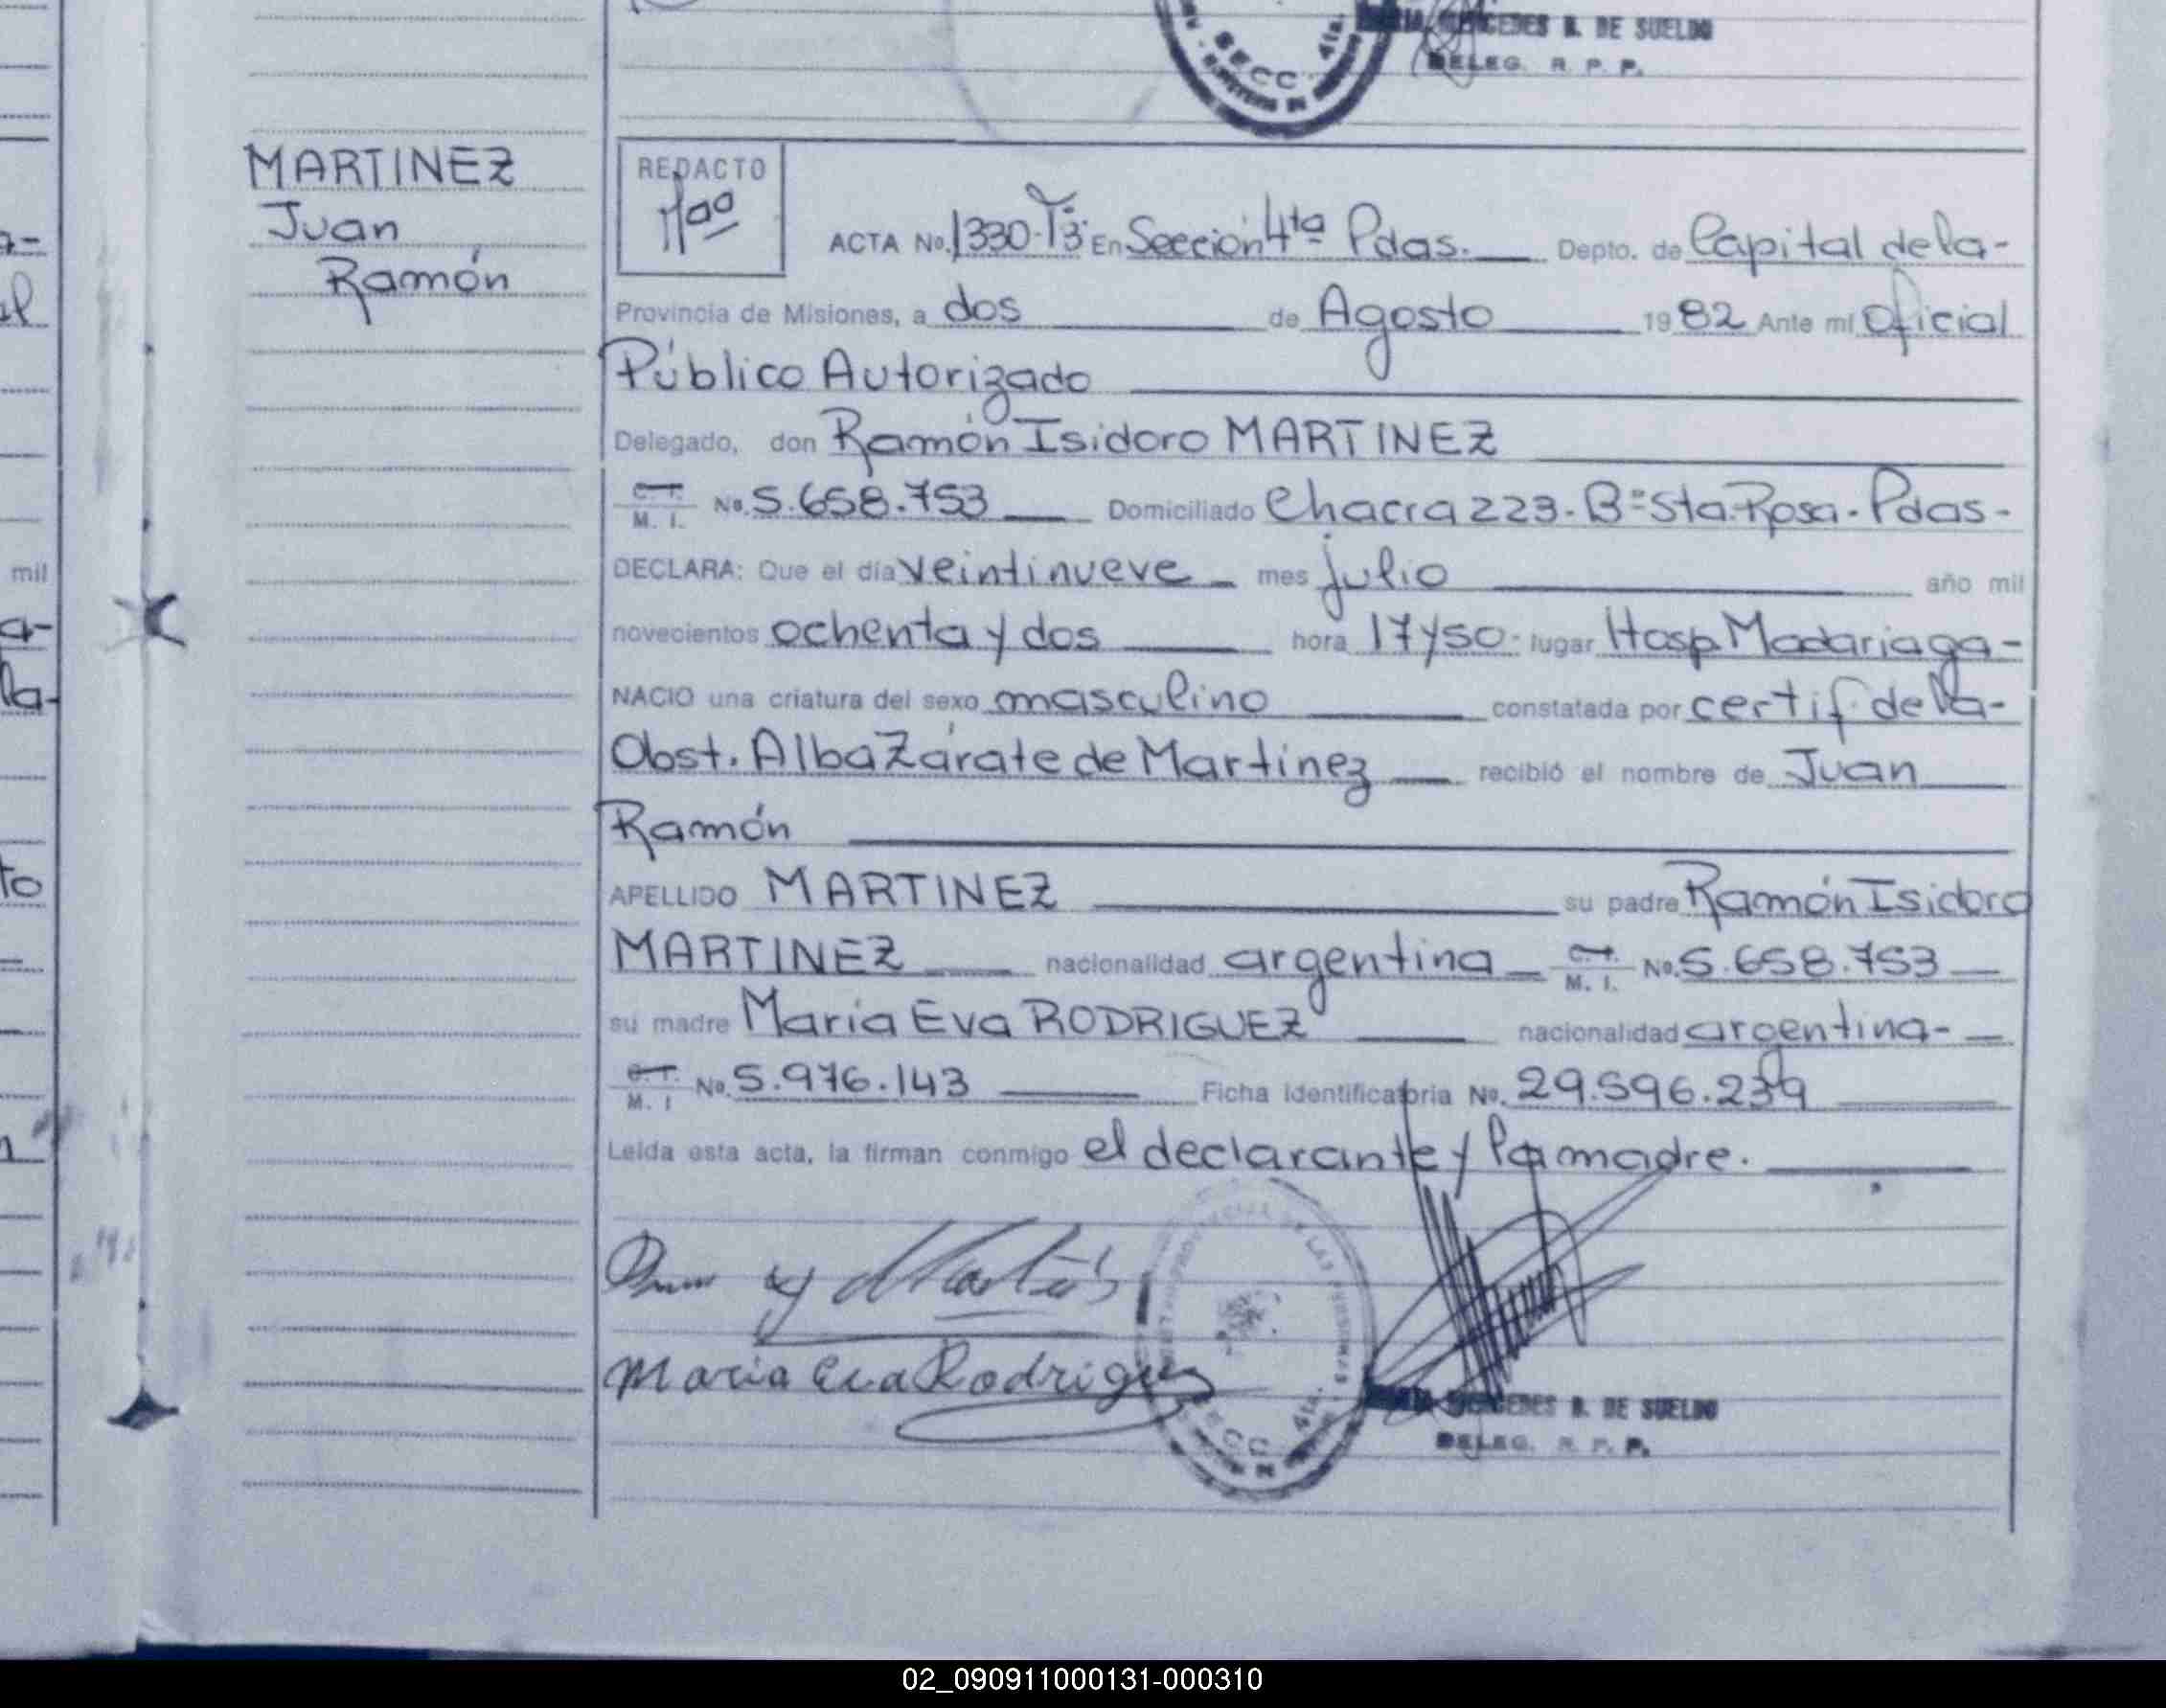 MARIA MERCEDES B. DE SUELDO
DELEG. R. P. P.
SECC. 4ta.
MARTINEZ
Juan
Ramón
REDACTO
ACTA No. 1330-Tº3º En Sección 4ta Pdas. Depto. de Capital de la-
Provincia de Misiones, a dos de Agosto 1982 Ante mi Oficial
Público Autorizado
Delegado, don Ramón Isidoro MARTINEZ
C. I. M. I. No. 5.658.753 Domiciliado Chacra 223. Bº Sta. Rosa. Pdas-
DECLARA: Que el día veintinueve mes julio año mil
novecientos ochenta y dos hora 17 y 50. lugar Hosp. Madariaga-
NACIO una criatura del sexo masculino constatada por certif. de la-
Obst. Alba Zárate de Martinez recibió el nombre de Juan
Ramón
APELLIDO MARTINEZ su padre Ramón Isidoro
MARTINEZ nacionalidad argentina C. I. M. I. No. 5.658.753
su madre María Eva RODRIGUEZ nacionalidad argentina-
C. I. M. I No. 5.976.143 Ficha Identificatoria No. 29.596.239
Leída esta acta, la firman conmigo el declarante y la madre.
Maria Eva Rodriguez
SECC 4ta.
MARIA MERCEDES B. DE SUELDO
DELEG. R. P. P.
mil
a-
la-
to
02_090911000131-000310